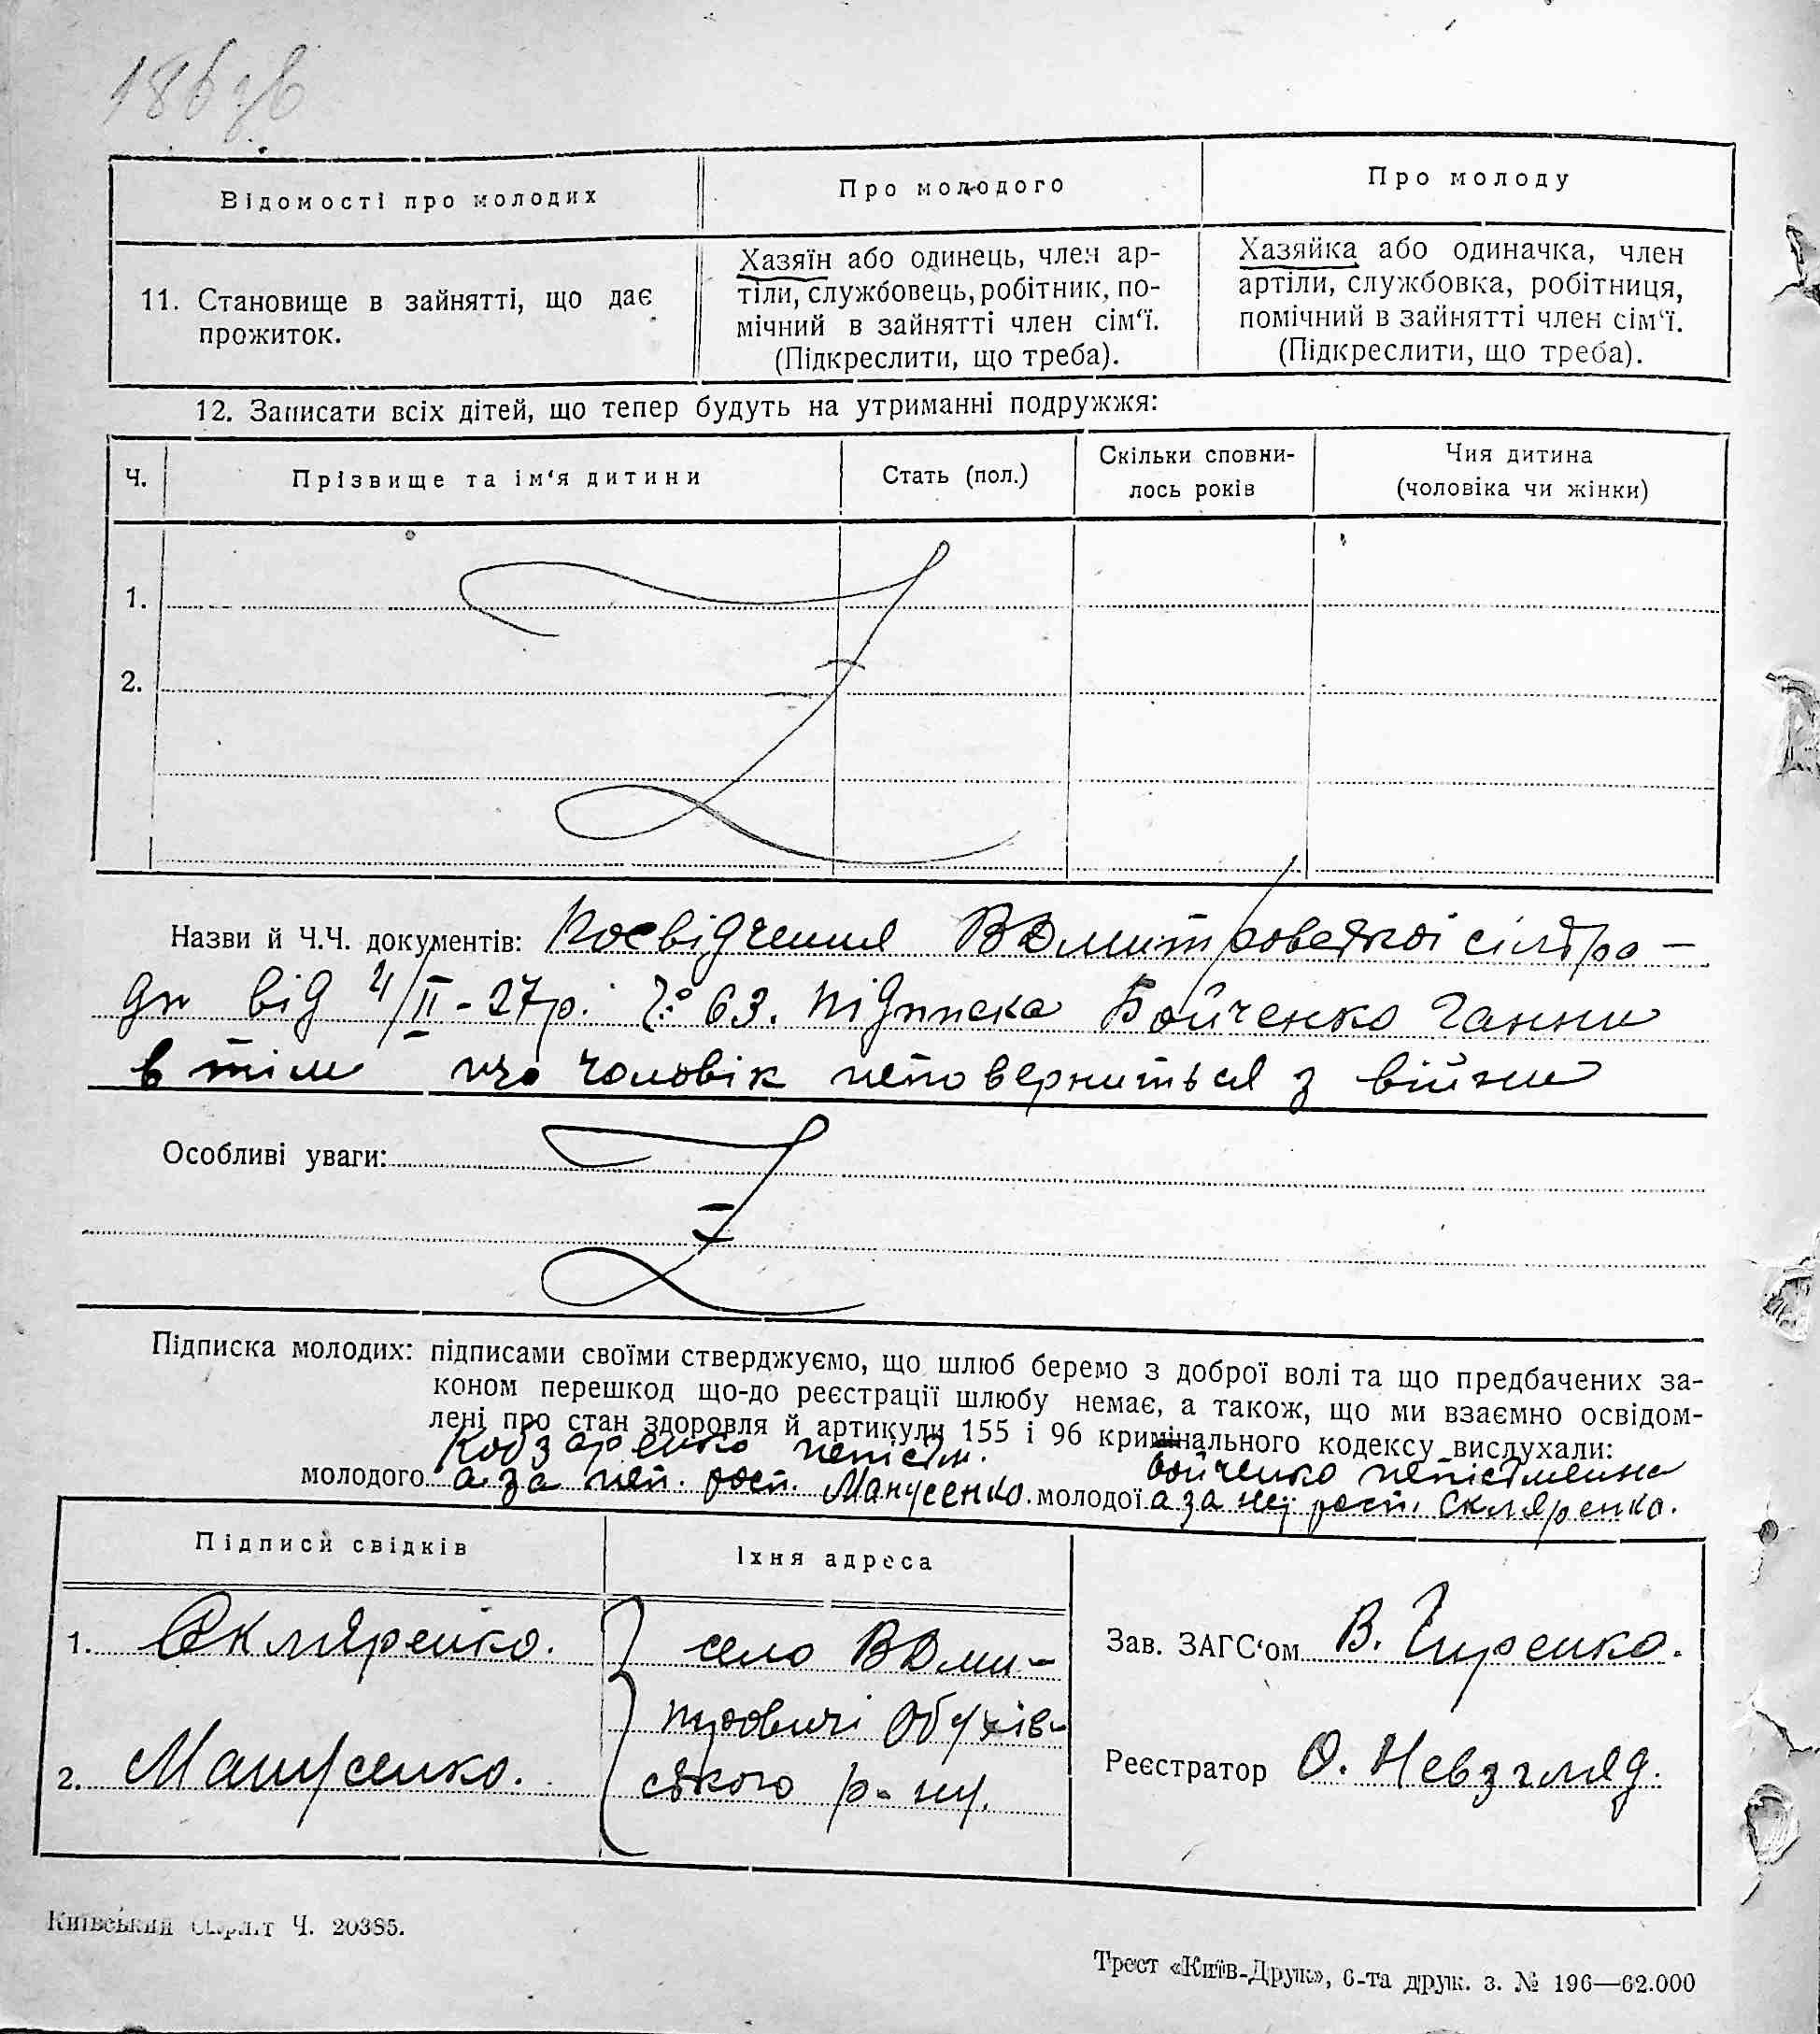 186 зв
Відомості про молодих
Про молодого
Про молоду
11. Становище в зайнятті, що дає
прожиток.
Хазяїн або одинець, член ар-
тіли, службовець, робітник, по-
мічний в зайнятті член сім'ї.
(Підкреслити, що треба).
Хазяйка або одиначка, член
артіли, службовка, робітниця,
помічний в зайнятті член сім'ї.
(Підкреслити, що треба).
12. Записати всіх дітей, що тепер будуть на утриманні подружжя:
Ч.
Прізвище та ім'я дитини
Стать (пол.)
Скільки сповни-
лось років
Чия дитина
(чоловіка чи жінки)
1.
2.
Назви й Ч.Ч. документів: Посвідчення ВДмитровської сільра-
ди від 4/II-27р. Ч: 63. Підписка Бойченко Ганни
в тім що чоловік неповерниться з війни
Особливі уваги:
Підписка молодих: підписами своїми стверджуємо, що шлюб беремо з доброї волі та що предбачених за-
коном перешкод що-до реєстрації шлюбу немає, а також, що ми взаємно освідом-
лені про стан здоровля й артикули 155 і 96 кримінального кодексу вислухали:
Кобзаренко неписьм.
Бойченко неписьменна
молодого а за неп. росп. Манусенко. молодої а за неї росп. Скляренко.
Підписи свідків
Їхня адреса
1. Скляренко.
село ВДми-
тровичі Обухів-
2. Манусенко.
ського р-ну.
Зав. ЗАГС'ом В. Гиренко.
Реєстратор О. Невзгляд.
Київський Ч. 20385.
Трест «Київ-Друк», 6-та друк. з. № 196—62.000